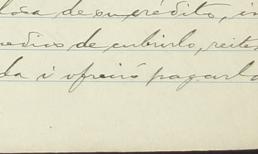 losa de su crédito, in
medios de cubrirlo, reite
da i ofreió pagarlo